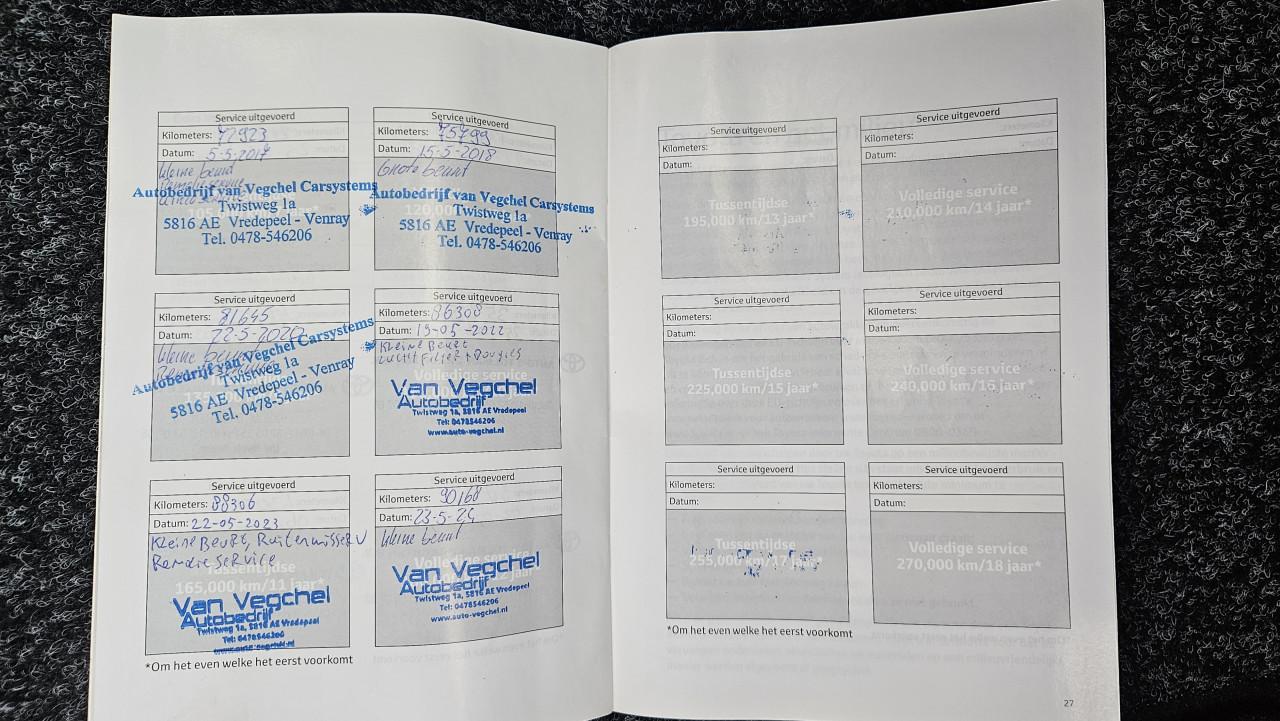 Service uitgevoerd
Kilometers: 72923
Datum: 5-5-2017
kleine beurt
Autobedrijf van Vegchel Carsystems
Twistweg 1a
5816 AE Vredepeel - Venray
Tel. 0478-546206
Service uitgevoerd
Kilometers: 75799
Datum: 15-5-2018
Grote beurt
Autobedrijf van Vegchel Carsystems
120,000
Twistweg 1a
5816 AE Vredepeel - Venray
Tel. 0478-546206
Service uitgevoerd
Kilometers: 81645
Datum: 22-5-2020
kleine beurt
Autobedrijf van Vegchel Carsystems
Twistweg 1a
5816 AE Vredepeel - Venray
Tel. 0478-546206
Service uitgevoerd
Kilometers: 86308
Datum: 19-05-2022
Kleine Beurt
Lucht Filter + Bougies
Van Vegchel
Autobedrijf
Twistweg 1a, 5816 AE Vredepeel
Tel: 0478546206
www.auto-vegchel.nl
Service uitgevoerd
Kilometers: 88306
Datum: 22-05-2023
Kleine Beurt, Ruitenwisser V
Remdie Service
Tussentijdse
165,000 km/11 jaar*
Van Vegchel
Autobedrijf
Twistweg 1a, 5816 AE Vredepeel
Tel: 0478546206
www.auto-vegchel.nl
Service uitgevoerd
Kilometers: 90168
Datum: 23-5-24
kleine beurt
Volledige service
Van Vegchel
Autobedrijf
Twistweg 1a, 5816 AE Vredepeel
Tel: 0478546206
www.auto-vegchel.nl
*Om het even welke het eerst voorkomt
Service uitgevoerd
Kilometers:
Datum:
Tussentijdse
195,000 km/13 jaar*
Service uitgevoerd
Kilometers:
Datum:
Volledige service
210,000 km/14 jaar*
Service uitgevoerd
Kilometers:
Datum:
Tussentijdse
225,000 km/15 jaar*
Service uitgevoerd
Kilometers:
Datum:
Volledige service
240,000 km/16 jaar*
Service uitgevoerd
Kilometers:
Datum:
Tussentijdse
255,000 km/17 jaar*
Service uitgevoerd
Kilometers:
Datum:
Volledige service
270,000 km/18 jaar*
*Om het even welke het eerst voorkomt
27